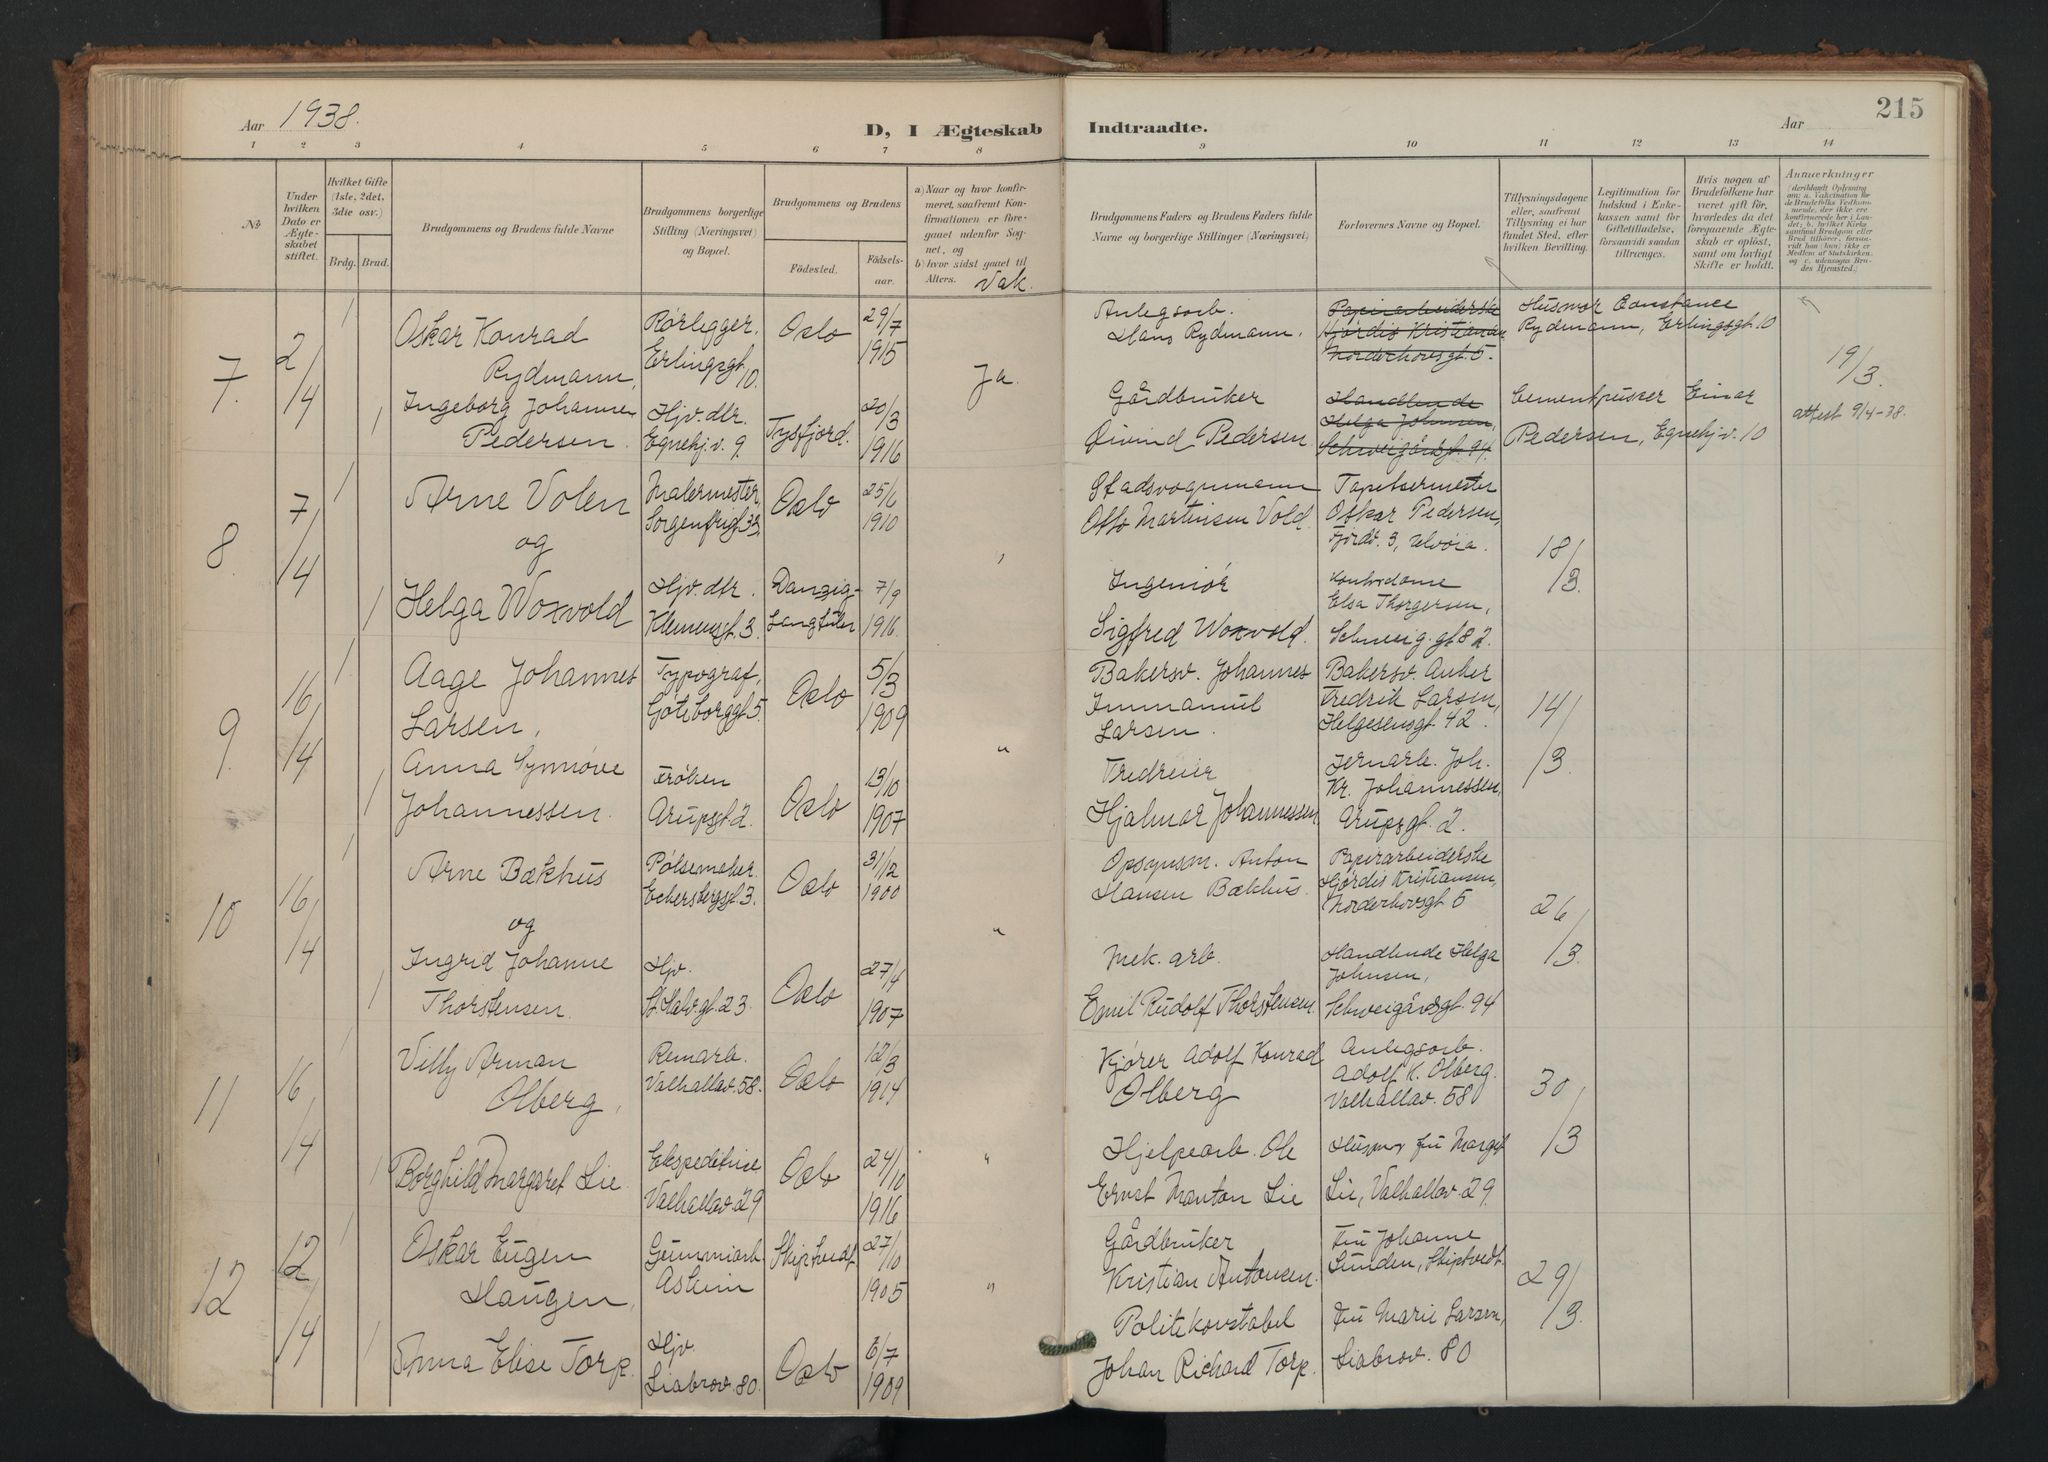 Aar 1938.
D, I Ægteskab Indtraadte.
Aar
215
1 2 3 4 5 6 7 8 9 10 11 12 13 14
No
Under hvilken Dato er Ægteskabet stiftet.
Hvilket Gifte (1ste, 2det, 3die osv.)
Brdg. Brud.
Brudgommens og Brudens fulde Navne
Brudgommens borgerlige Stilling (Næringsvei) og Bopæl.
Brudgommens og Brudens
Fødested. Fødselsaar.
a) Naar og hvor konfirmeret, saafremt Konfirmationen er foregaaet udenfor Sognet, og
b) hvor sidst gaaet til Alters.
Vak.
Brudgommens Faders og Brudens Faders fulde Navne og borgerlige Stillinger (Næringsvei)
Forlovernes Navne og Bopæl.
Tillysningsdagene eller, saafremt Tillysning ei har fundet Sted, efter hvilken Bevilling.
Legitimation for Indskud i Enkekassen samt for Giftetilladelse, forsaavidt saadan tiltrænges.
Hvis nogen af Brudefolkene har været gift før, hvorledes da det foregaaende Ægteskab er opløst, samt om lovligt Skifte er holdt.
Anmærkninger
7. 2/4
1 Oskar Konrad Rydmann,
Rørlegger. Erlingsgt. 10.
Oslo
29/7 1915
Ja.
Anlegsarb. Hans Rydmann.
Papirarbeiderske Hjørdis Kristiansen Norderhovsgt. 5.
Husmor Constance Rydmann, Erlingsgt. 10
19/3.
1 Ingeborg Johanne Pedersen.
Hjv. dtr. Egnehj.v. 9.
Tysfjord.
20/3 1916
Gårdbruker Øivind Pedersen.
Handlende Helga Johnsen, Schweigårdsgt. 94.
Cementpusser Einar Pedersen, Egnehj.v. 10
attest 9/4-38.
8. 7/4
1 Arne Volen
og
Malermester, Sorgenfrigt. 33.
Oslo
25/6 1910
Stadsvognmann Otto Martinsen Vold.
Tapetsermester Oskar Pedersen, Fjordv. 3, Ulvøia.
18/3.
1 Helga Woxvold
Hjv. dtr. Klemensgt. 3.
Danzig-Langfuhr
7/9 1916.
Ingeniør Sigfred Woxvold.
Kontordame Elsa Thorgersen, Schweig.gt 82.
9. 16/4
1 Aage Johannes Larsen,
Typograf, Göteborggt. 5.
Oslo
5/3 1909
"
Bakersv. Johannes Immanuel Larsen.
Bakersv. Anker Fredrik Larsen, Helgesensgt. 42.
14/3.
1 Anna Synnøve Johannessen.
Frøken Arupsgt. 2.
Oslo
13/10 1907
Tredreier Hjalmar Johannessen
Jernarb. Joh. Kr. Johannessen, Arupsgt. 2.
10 16/4
1 Arne Bækhus
og
Pølsemaker. Eckersbergsgt. 3.
Oslo
31/12 1900
"
Opsynsm. Anton Hansen Bækhus.
Papirarbeiderske Hjørdis Kristiansen, Norderhovsgt. 5
26/3.
1 Ingrid Johanne Thorstensen.
Hjv. St. Halv.gt. 23.
Oslo
27/4 1907
Mek. arb. Emil Rudolf Thorstensen.
Handlende Helga Johnsen, Schweigårdsgt. 94
11 16/4
1 Villy Arman Olberg,
Remarb. Valhallav. 58.
Oslo
12/3 1914
Kjører Adolf Konrad Olberg
Anlegsarb. Adolf K. Olberg. Valhallav. 58
30/3
1 Borghild Margaret Lie.
Ekspeditrice Valhallav. 29
Oslo
24/10 1916
"
Hjelpearb. Ole Ernst Manton Lie
Husmor fru Margit Lie, Valhallav. 29.
12 12/4
1 Oskar Eugen Haugen,
Gummiarb. Askim
Skiptvedt
27/10 1905
"
Gårdbruker Kristian Antonsen.
Fru Johanne Lunden, Skiptvedt
29/3.
1 Anna Elise Torp.
Hjv. Liabrov. 80.
Oslo
6/7 1909
Politikonstabel Johan Richard Torp.
Fru Marie Larsen, Liabrov. 80